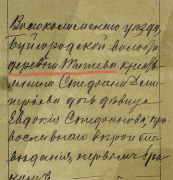 Волоколамскаго уезда,
Буйгородской волости
деревни Титева крестья
нина Стефана Дими
триева дочь девица
Евдокия Стефанова, пра
вославнаго вероиспо
ведания, первымъ бра
комъ